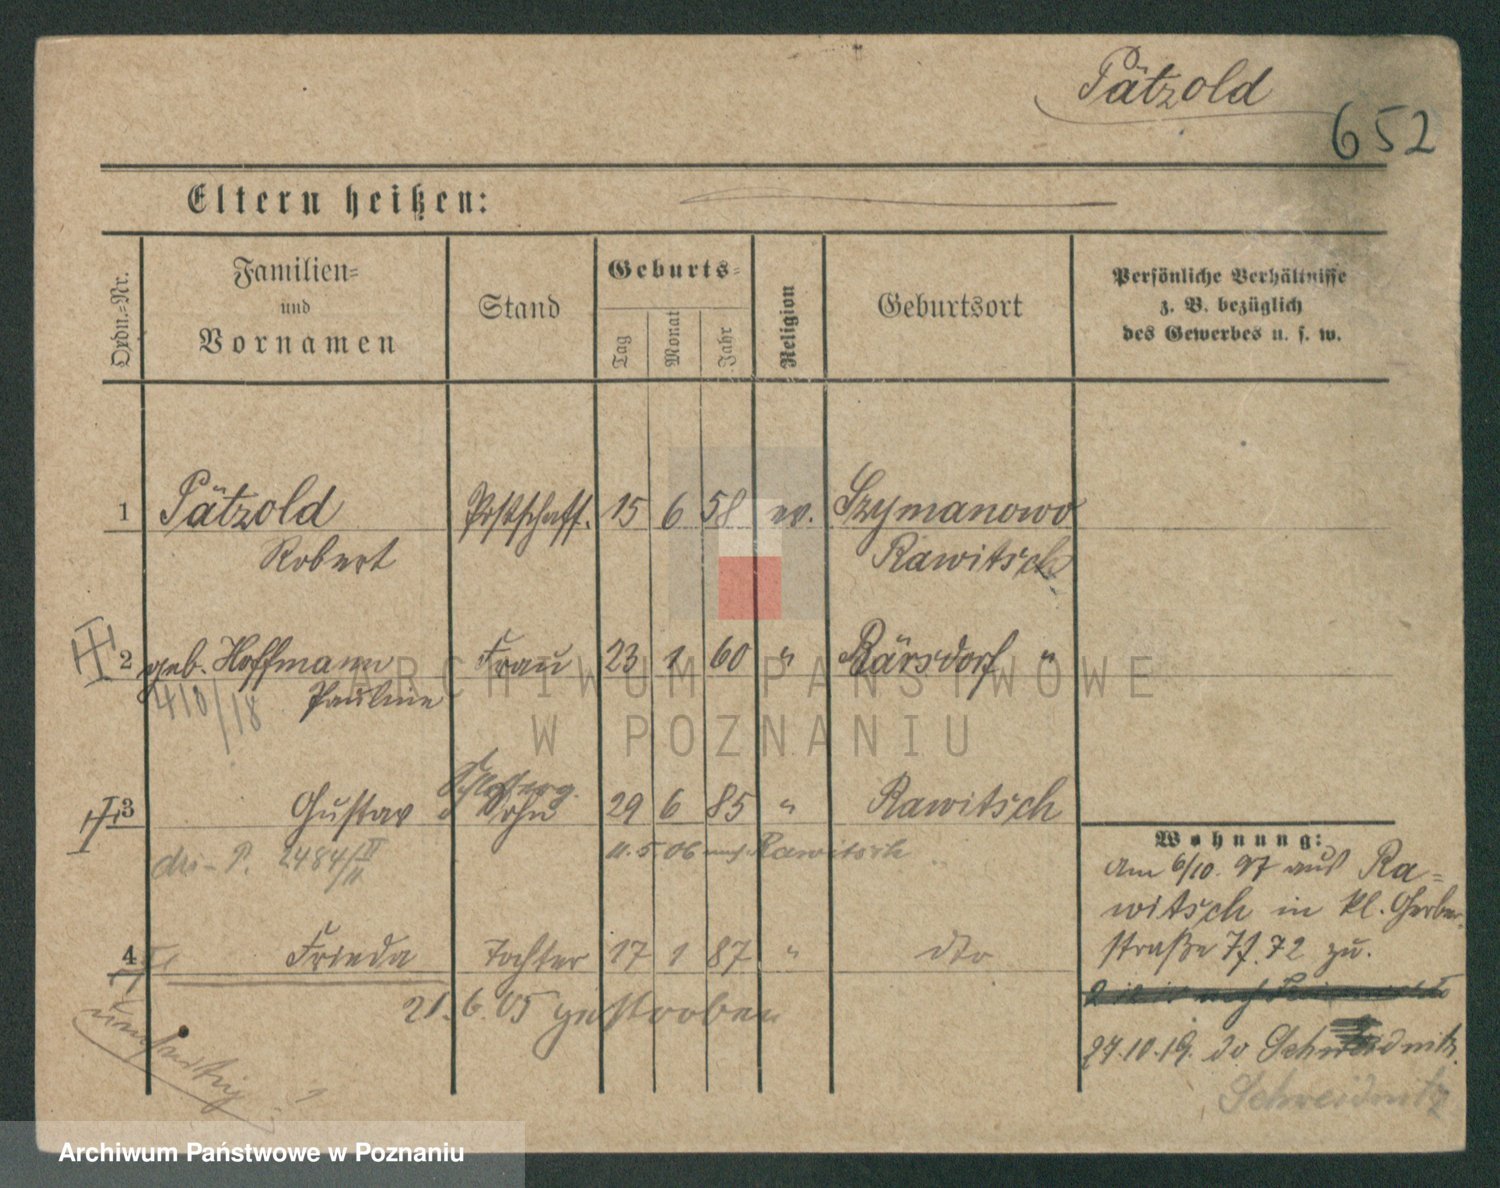 Pätzold
652
Eltern heißen:
Ordn.-Nr.
Familien-
und
Vornamen
Stand
Geburts-
Tag
Monat
Jahr
Religion
Geburtsort
Persönliche Verhältnisse
z. B. bezüglich
des Gewerbes u. s. w.
1 Pätzold Postschaff. 15 6 58 ev. Szymanowo
Robert Rawitsch
2 geb. Hoffmann Frau 23 1 60 " Bärsdorf "
Pauline
4/10/18
ARCHIWUM PAŃSTWOWE
W POZNANIU
3 Gustav Sohn 29 6 85 " Rawitsch
P. 2484/II 11.5.06 nach Rawitsch
4 Frieda Tochter 17 1 87 " dto
21.6.05 gestorben
Wohnung:
Am 6/10. 97 aus Ra=
witsch in kl. Gerber
straße 7f. 72 zu.
27.10.19. do Schweidnitz
Schweidnitz
Archiwum Państwowe w Poznaniu